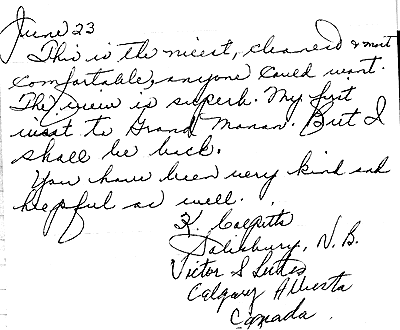 June 23
This is the nicest, cleanest & most
comfortable, anyone could want.
The view is superb. My first
visit to Grand Manan. But I
shall be back.
You have been very kind and
helpful as well.
K.
Salisbury, N.B.
Victor S
Calgary Alberta
Canada.